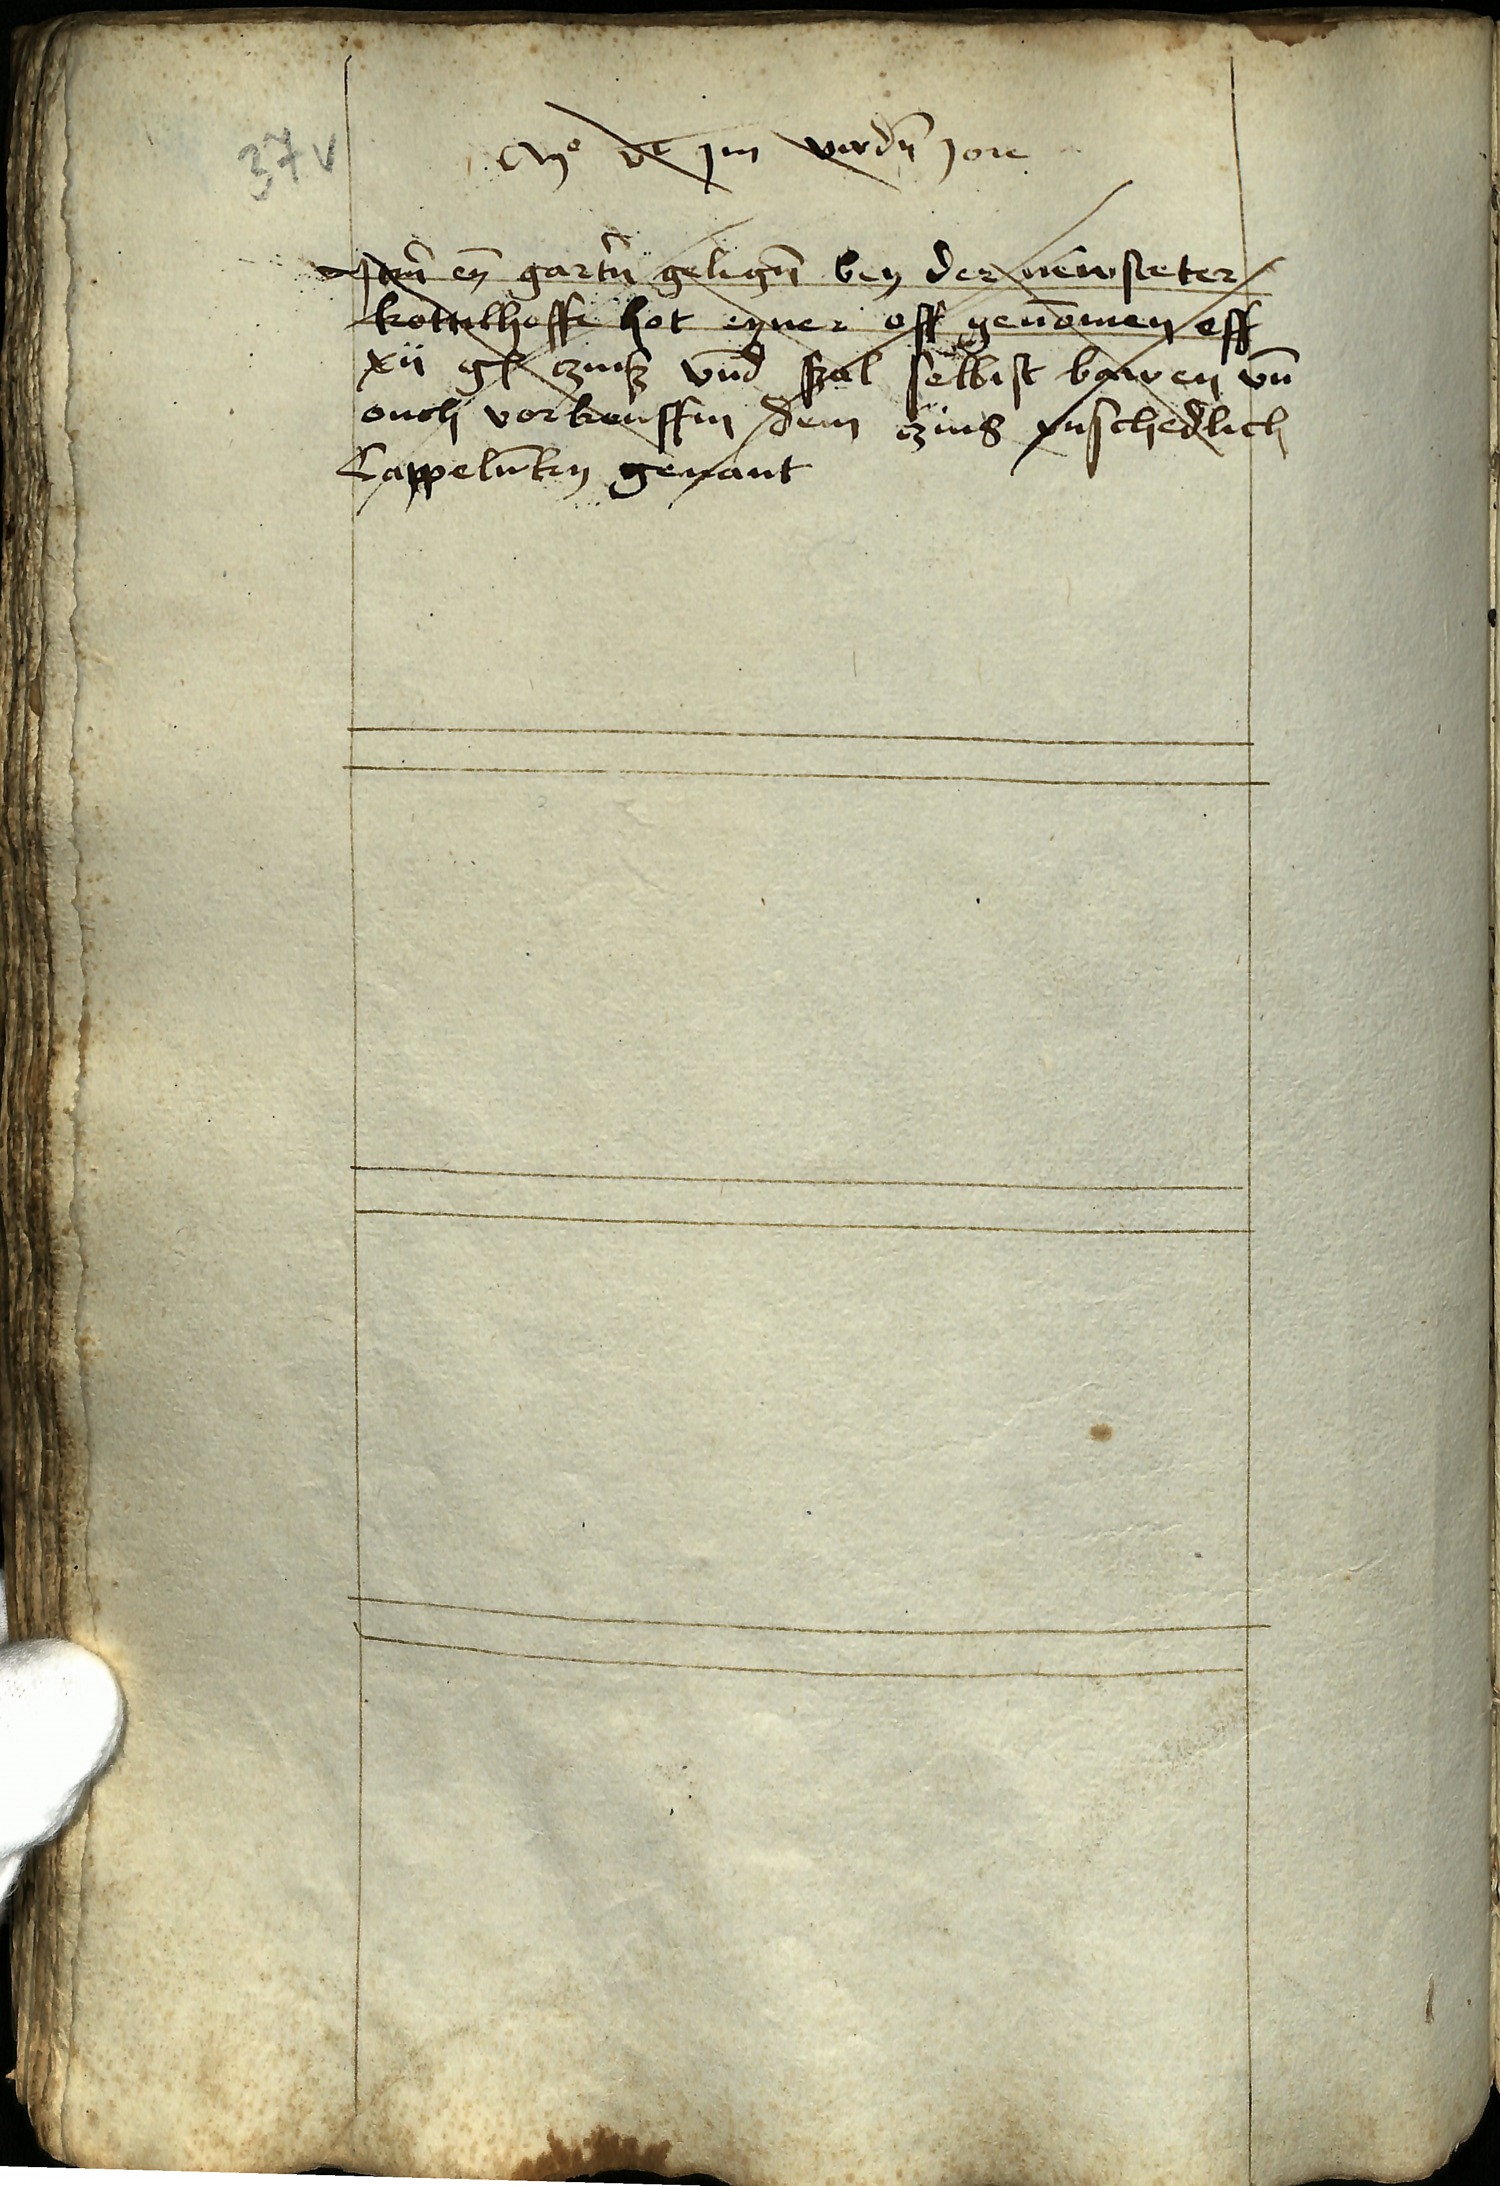 37v
Mº vᶜ jm vird̄n jore
Jtem̄ eȳ gartn̄ gelign̄ bey der newsteter
kottelhoffe hot eyner off genōmen eff
xii gl czinß vnd̄ szal selbist bawen vn̄
ouch vorkeuffin dem czinß vnschedlich
Cappelūkey genant